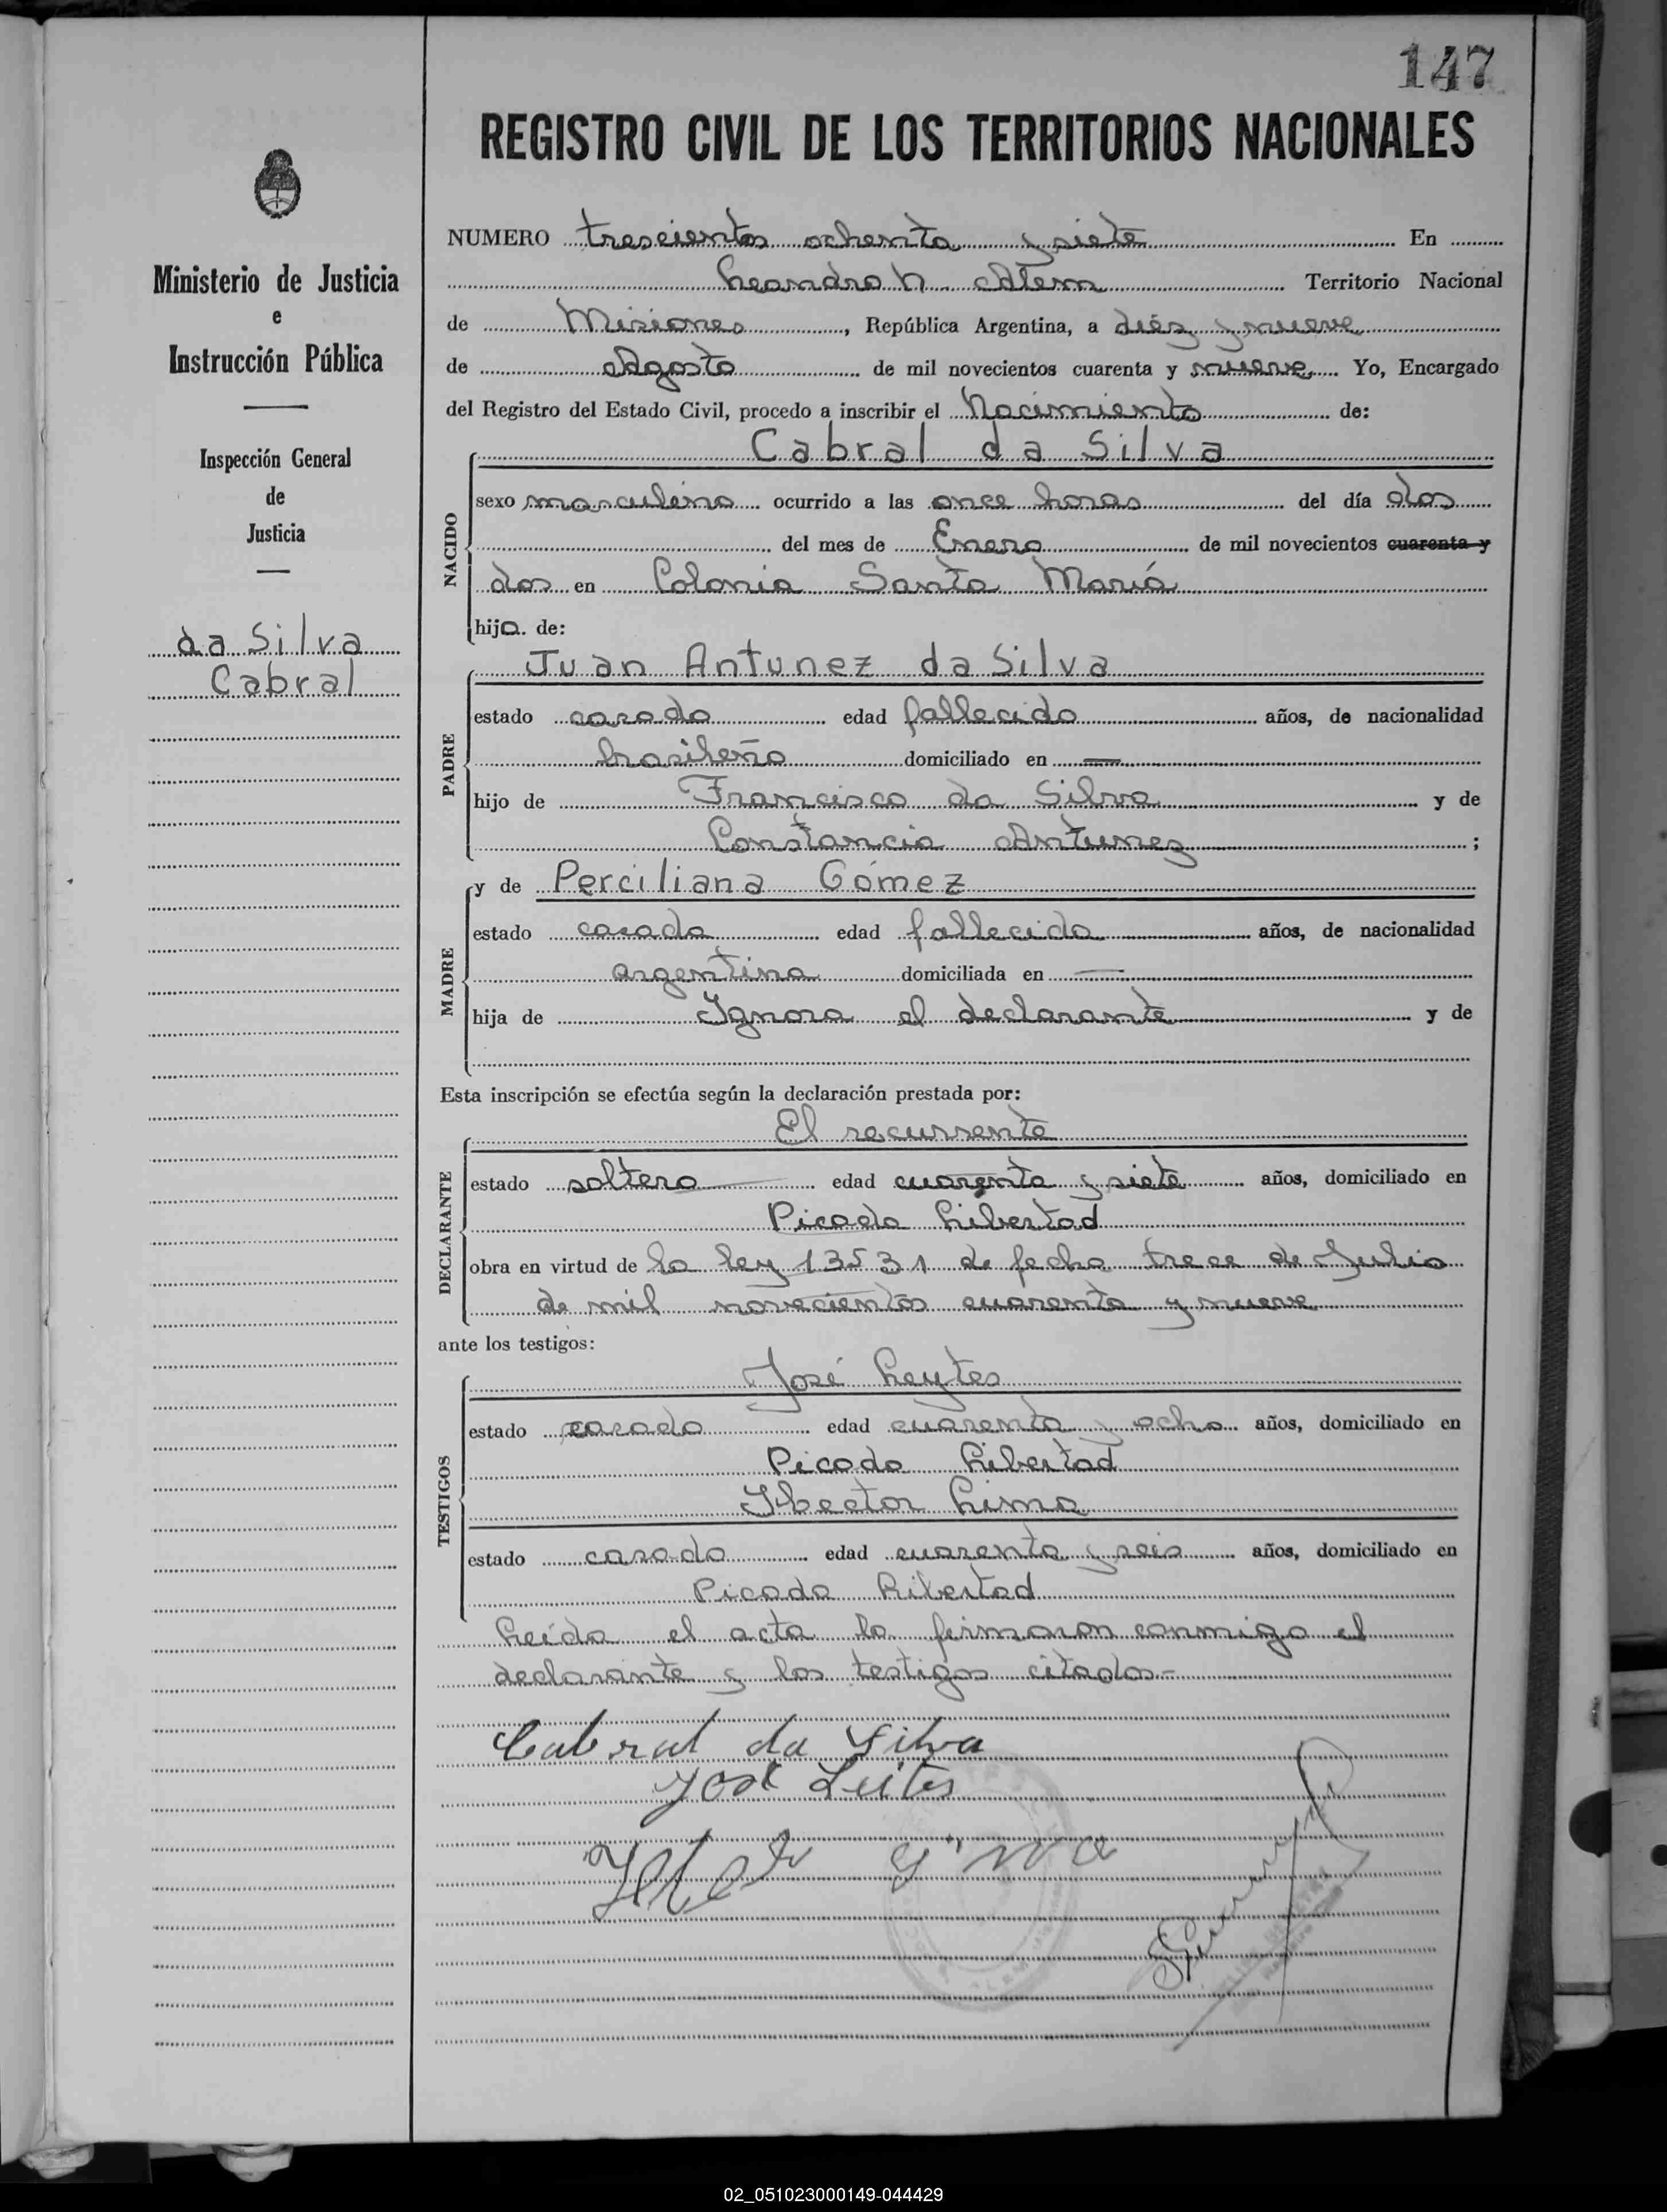 147
REGISTRO CIVIL DE LOS TERRITORIOS NACIONALES
Ministerio de Justicia
e
Instrucción Pública
Inspección General
de
Justicia
da Silva
Cabral
NUMERO trescientos ochenta y siete En
Leandro N. Alem Territorio Nacional
de Misiones, República Argentina, a diéz y nueve
de Agosto de mil novecientos cuarenta y nueve. Yo, Encargado
del Registro del Estado Civil, procedo a inscribir el Nacimiento de:
Cabral da Silva
NACIDO
sexo masculino ocurrido a las once horas del día dos
del mes de Enero de mil novecientos cuarenta y
dos en Colonia Santa María
hijo de:
Juan Antunez da Silva
PADRE
estado casado edad fallecido años, de nacionalidad
brasileño domiciliado en —
hijo de Francisco da Silva y de
Constancia Antunez ;
MADRE
y de Perciliana Gómez
estado casada edad fallecida años, de nacionalidad
argentina domiciliada en —
hija de Ignora el declarante y de
Esta inscripción se efectúa según la declaración prestada por:
El recurrente
DECLARANTE
estado soltero edad cuarenta y siete años, domiciliado en
Picada Libertad
obra en virtud de la ley 13531 de fecha trece de Julio
de mil novecientos cuarenta y nueve
ante los testigos:
José Leytes
TESTIGOS
estado casado edad cuarenta y ocho años, domiciliado en
Picada Libertad
Hector Lima
estado casado edad cuarenta y seis años, domiciliado en
Picada Libertad
Leída el acta la firmaron conmigo el
declarante y los testigos citados.-
Cabral da Silva
José Leites
02_051023000149-044429